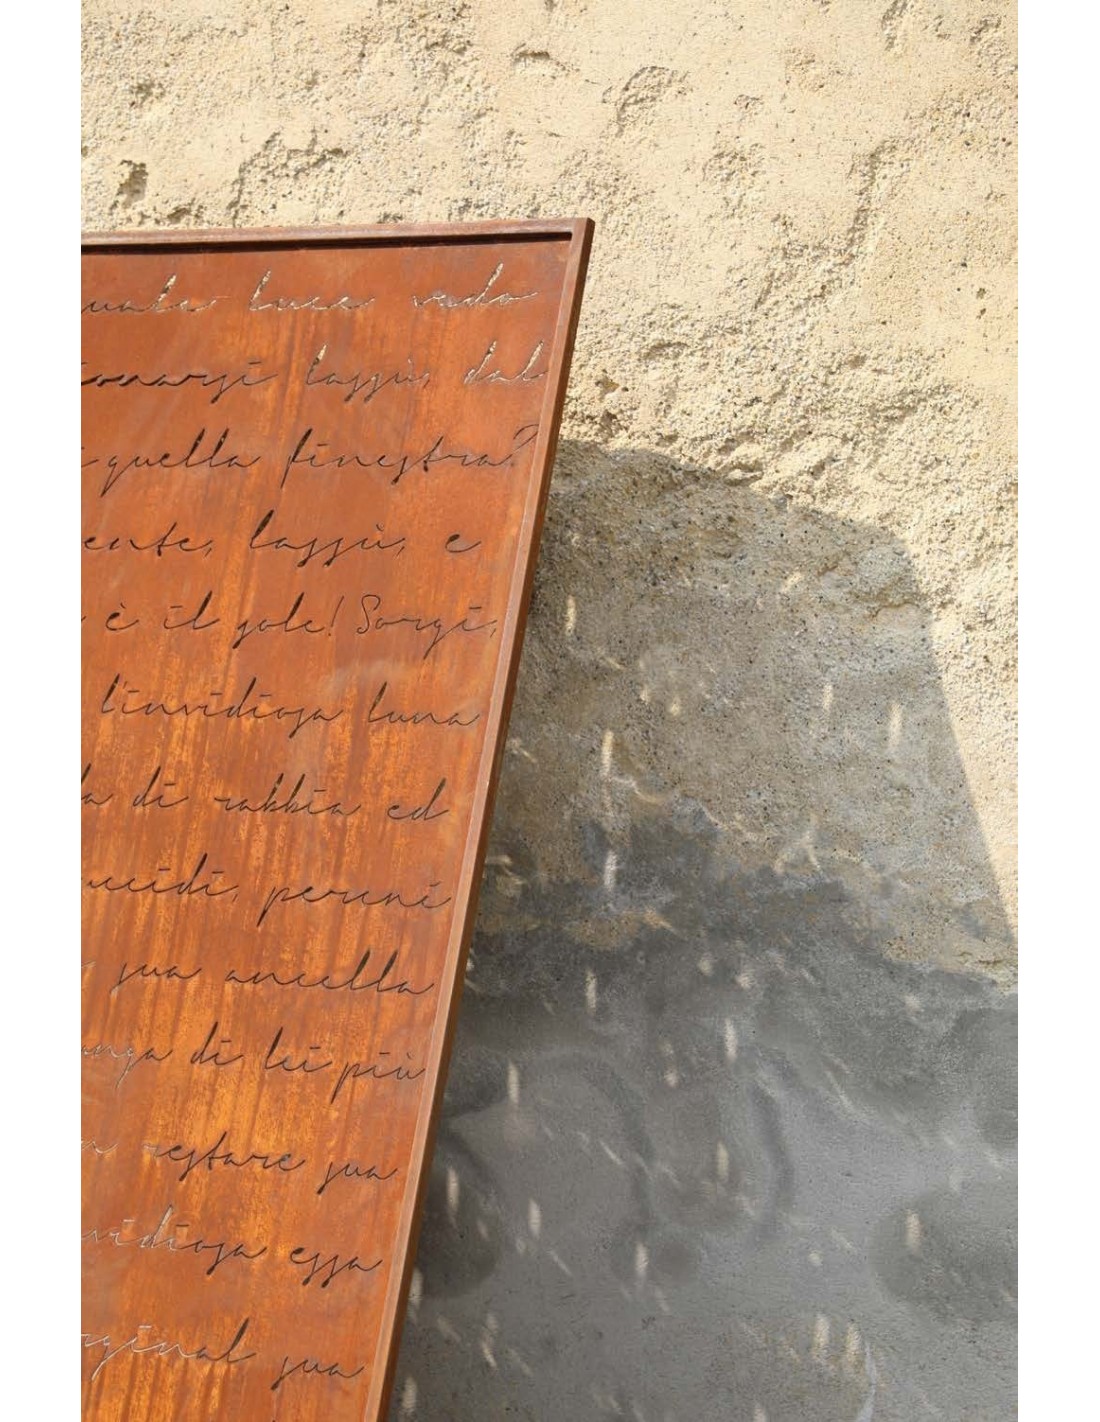 uale luce vedo
ionarsi lassù, dal
i quella finestra?
ente, lassù, e
è il sole! Sorgi,
l'invidiosa luna
a di rabbia ed
uccidi,
sua ancella
anza di lei più
restare sua
vidiosa essa
rginal sua